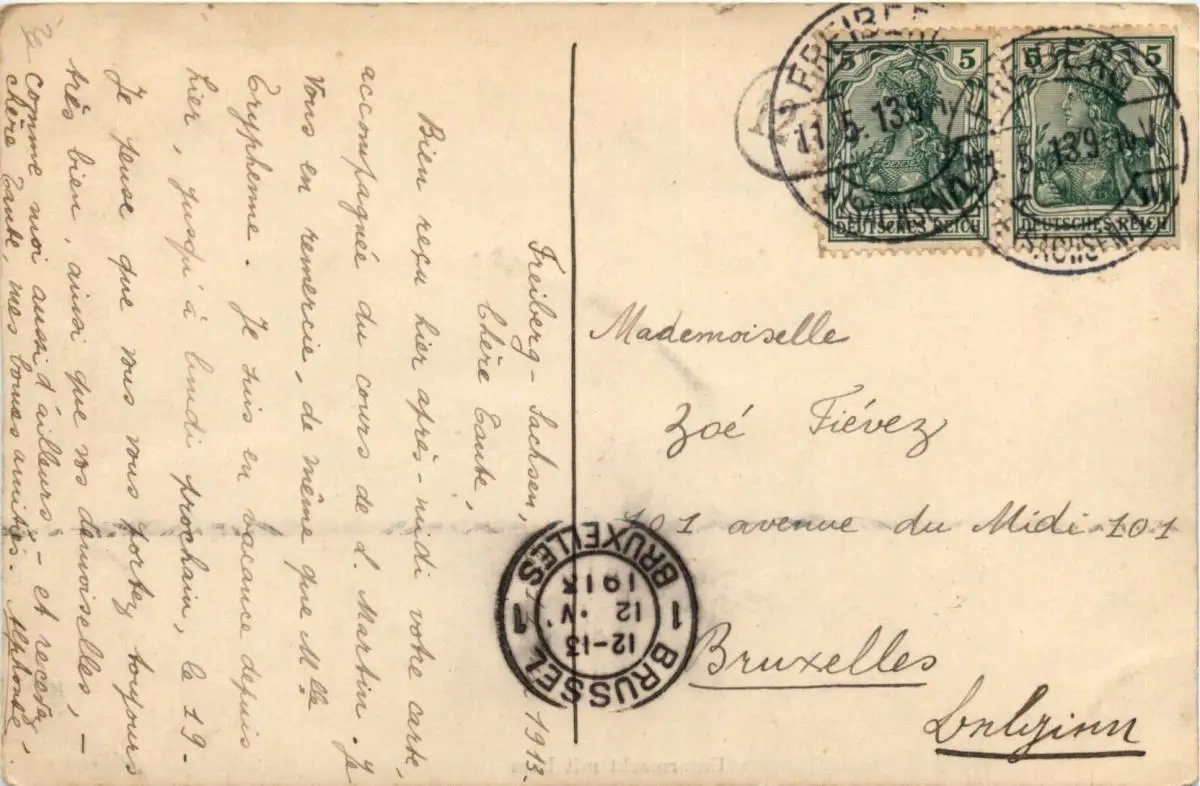 Freiberg - Sachsen, 1913.
Chère Tante,
Bien reçu hier après-midi votre carte,
accompagnée du cours de L. Martin. Je
vous en remercie, de même que Mlle
Trypheme. Je suis en vacance depuis
hier, jusqu'à lundi prochain, le 19-
Je pense que vous vous portez toujours
très bien, ainsi que vos demoiselles, -
comme moi aussi d'ailleurs, - et recevez,
chère Tante, mes bonnes amitiés. Alphonse
FREIBERG
11. 5. 13. 9
(SACHSEN)
5
5
DEUTSCHES REICH
FREIBERG
5. 13. 9
(SACHSEN)
5
5
DEUTSCHES REICH
Mademoiselle
Zoé Fiévez
101 avenue du Midi-101
Bruxelles
Belgien
1 BRUSSEL 1
12-13
12 ·V·
1913
BRUXELLES